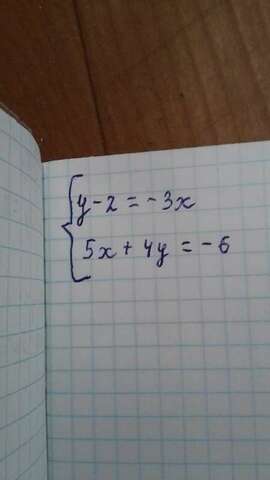 y - 2 = -3x
5x + 4y = -6